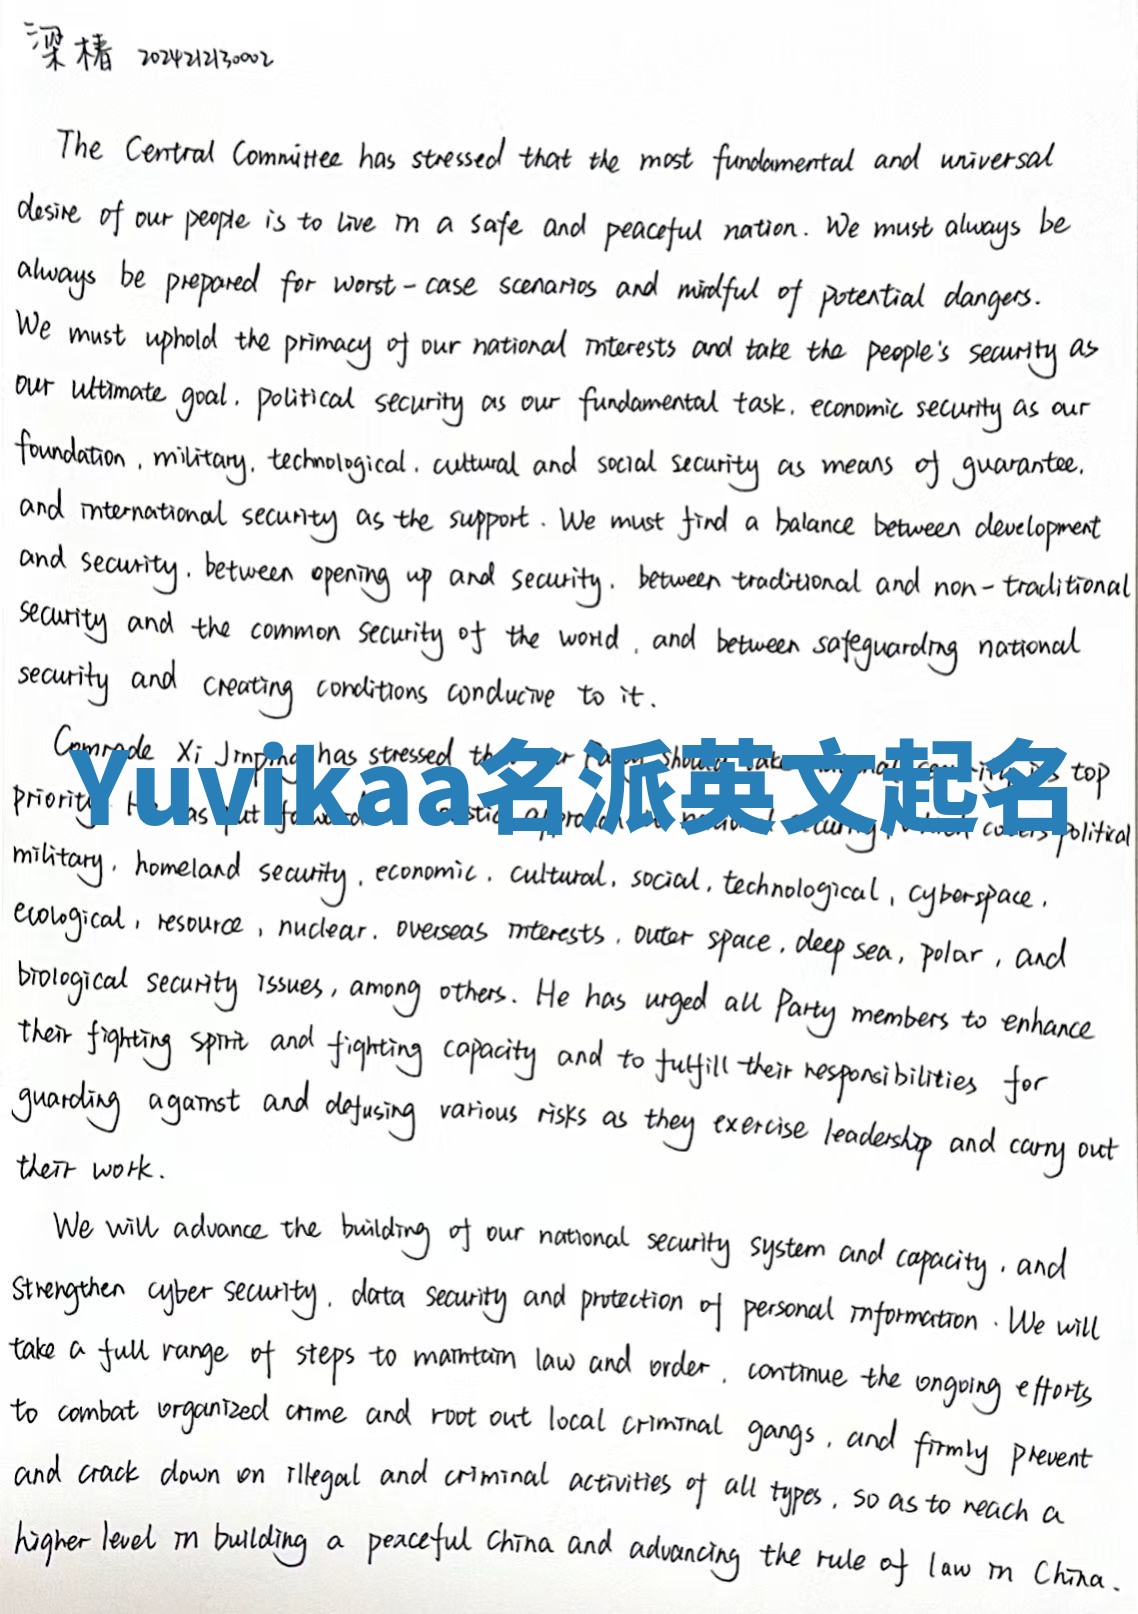 梁椿 2024212130002
The Central Committee has stressed that the most fundamental and universal
desire of our people is to live in a safe and peaceful nation. We must always be
always be prepared for worst-case scenarios and mindful of potential dangers.
We must uphold the primacy of our national interests and take the people's security as
our ultimate goal, political security as our fundamental task, economic security as our
foundation, military, technological, cultural and social security as means of guarantee,
and international security as the support. We must find a balance between development
and security, between opening up and security, between traditional and non-traditional
security and the common security of the world, and between safeguarding national
security and creating conditions conducive to it.
Comrade Xi Jinping has stressed top
Yuvikaa名派英文起名
priority political
military, homeland security, economic, cultural, social, technological, cyberspace,
ecological, resource, nuclear, overseas interests, outer space, deep sea, polar, and
biological security issues, among others. He has urged all Party members to enhance
their fighting spirit and fighting capacity and to fulfill their responsibilities for
guarding against and defusing various risks as they exercise leadership and carry out
their work.
We will advance the building of our national security system and capacity, and
strengthen cyber security, data security and protection of personal information. We will
take a full range of steps to maintain law and order, continue the ongoing efforts
to combat organized crime and root out local criminal gangs, and firmly prevent
and crack down on illegal and criminal activities of all types, so as to reach a
higher level in building a peaceful China and advancing the rule of law in China.